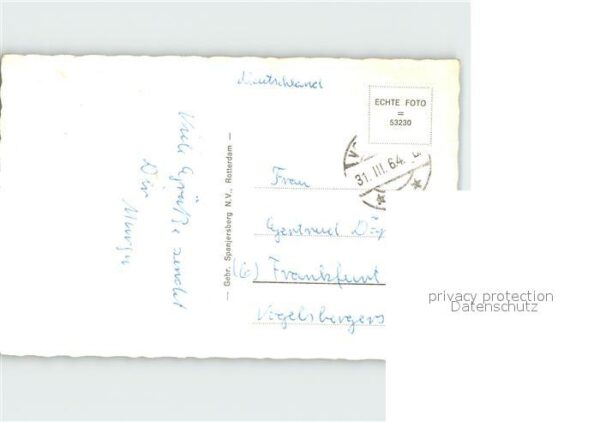 Deutschland
ECHTE FOTO
=
53230
31. III. 64.
Viele Grüße sendet
Dir
— Gebr. Spanjersberg N.V., Rotterdam —
Frau
Gertrud
(6) Frankfurt
Vogelsbergers
privacy protection
Datenschutz